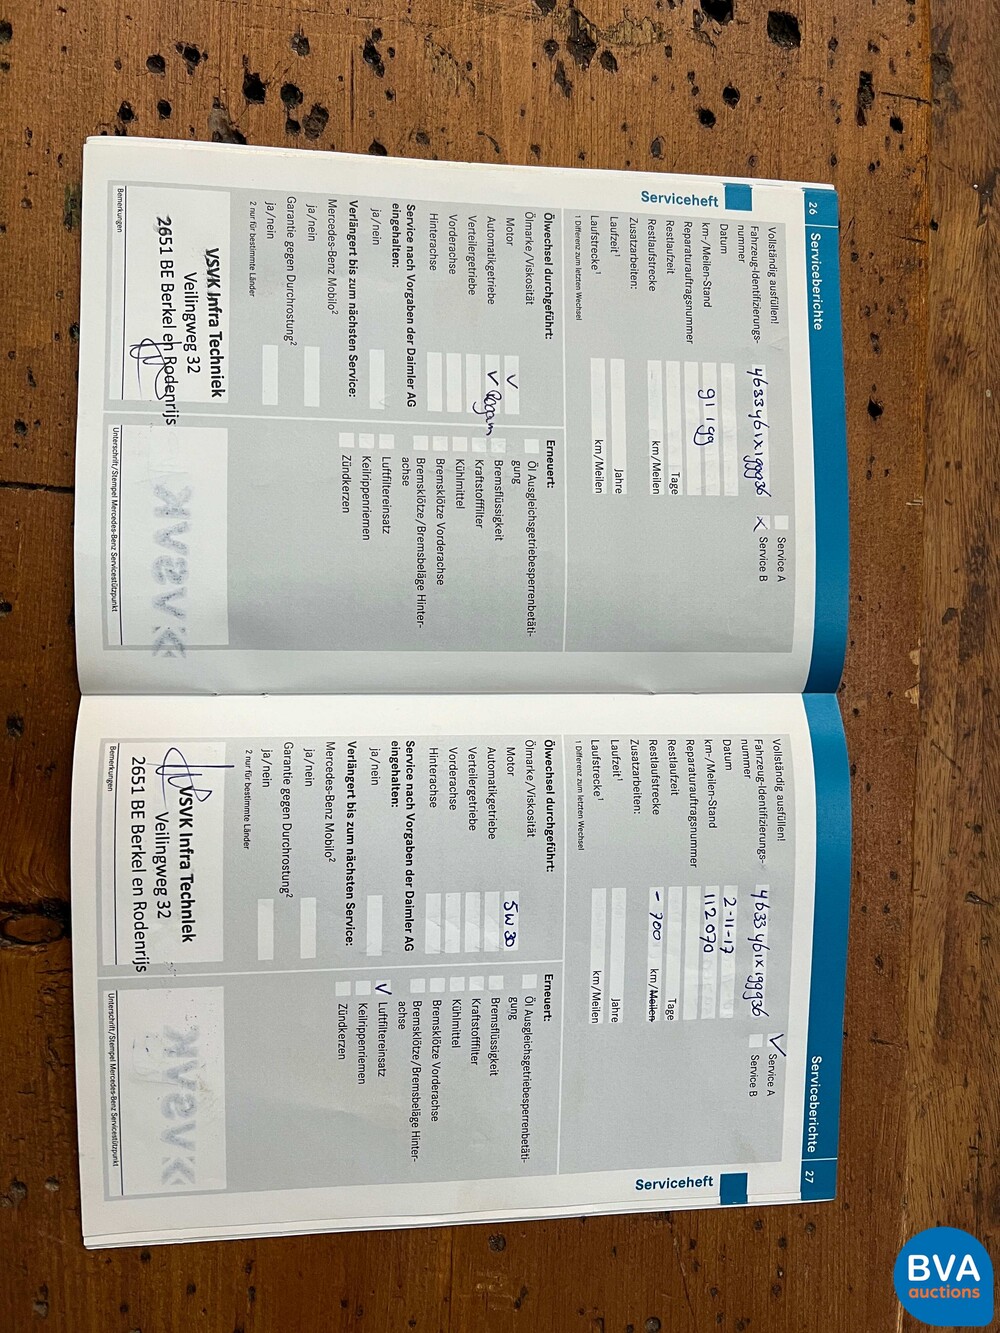 26 Serviceberichte
Serviceheft
Vollständig ausfüllen!
Fahrzeug-Identifizierungs-
nummer
4633461x199936
Datum
km-/Meilen-Stand
91199
Reparaturauftragsnummer
Restlaufzeit Tage
Restlaufstrecke km/Meilen
Zusatzarbeiten:
Laufzeit¹ Jahre
Laufstrecke¹ km/Meilen
1 Differenz zum letzten Wechsel
Service A
X Service B
Ölwechsel durchgeführt:
Ölmarke/Viskosität
Motor V
Automatikgetriebe V
Verteilergetriebe
Vorderachse
Hinterachse
Service nach Vorgaben der Daimler AG
eingehalten:
ja/nein
Verlängert bis zum nächsten Service:
Mercedes-Benz Mobilo²
ja/nein
Garantie gegen Durchrostung²
ja/nein
2 nur für bestimmte Länder
Erneuert:
Öl Ausgleichsgetriebesperrenbetäti-
gung
Bremsflüssigkeit
Kraftstofffilter
Kühlmittel
Bremsklötze Vorderachse
Bremsklötze/Bremsbeläge Hinter-
achse
Luftfiltereinsatz
Keilrippenriemen
Zündkerzen
VSVK Infra Techniek
Veilingweg 32
2651 BE Berkel en Rodenrijs
Bemerkungen
Unterschrift/Stempel Mercedes-Benz Servicestützpunkt
Serviceberichte 27
Serviceheft
Vollständig ausfüllen!
Fahrzeug-Identifizierungs-
nummer
4633461x199936
Datum 2-11-17
km-/Meilen-Stand 112070
Reparaturauftragsnummer
Restlaufzeit Tage
Restlaufstrecke - 700 km/Meilen
Zusatzarbeiten:
Laufzeit¹ Jahre
Laufstrecke¹ km/Meilen
1 Differenz zum letzten Wechsel
V Service A
Service B
Ölwechsel durchgeführt:
Ölmarke/Viskosität
Motor 5W30
Automatikgetriebe
Verteilergetriebe
Vorderachse
Hinterachse
Service nach Vorgaben der Daimler AG
eingehalten:
ja/nein
Verlängert bis zum nächsten Service:
Mercedes-Benz Mobilo²
ja/nein
Garantie gegen Durchrostung²
ja/nein
2 nur für bestimmte Länder
Erneuert:
Öl Ausgleichsgetriebesperrenbetäti-
gung
Bremsflüssigkeit
Kraftstofffilter
Kühlmittel
Bremsklötze Vorderachse
Bremsklötze/Bremsbeläge Hinter-
achse
V Luftfiltereinsatz
Keilrippenriemen
Zündkerzen
VSVK Infra Techniek
Veilingweg 32
2651 BE Berkel en Rodenrijs
Bemerkungen
Unterschrift/Stempel Mercedes-Benz Servicestützpunkt
BVA
auctions